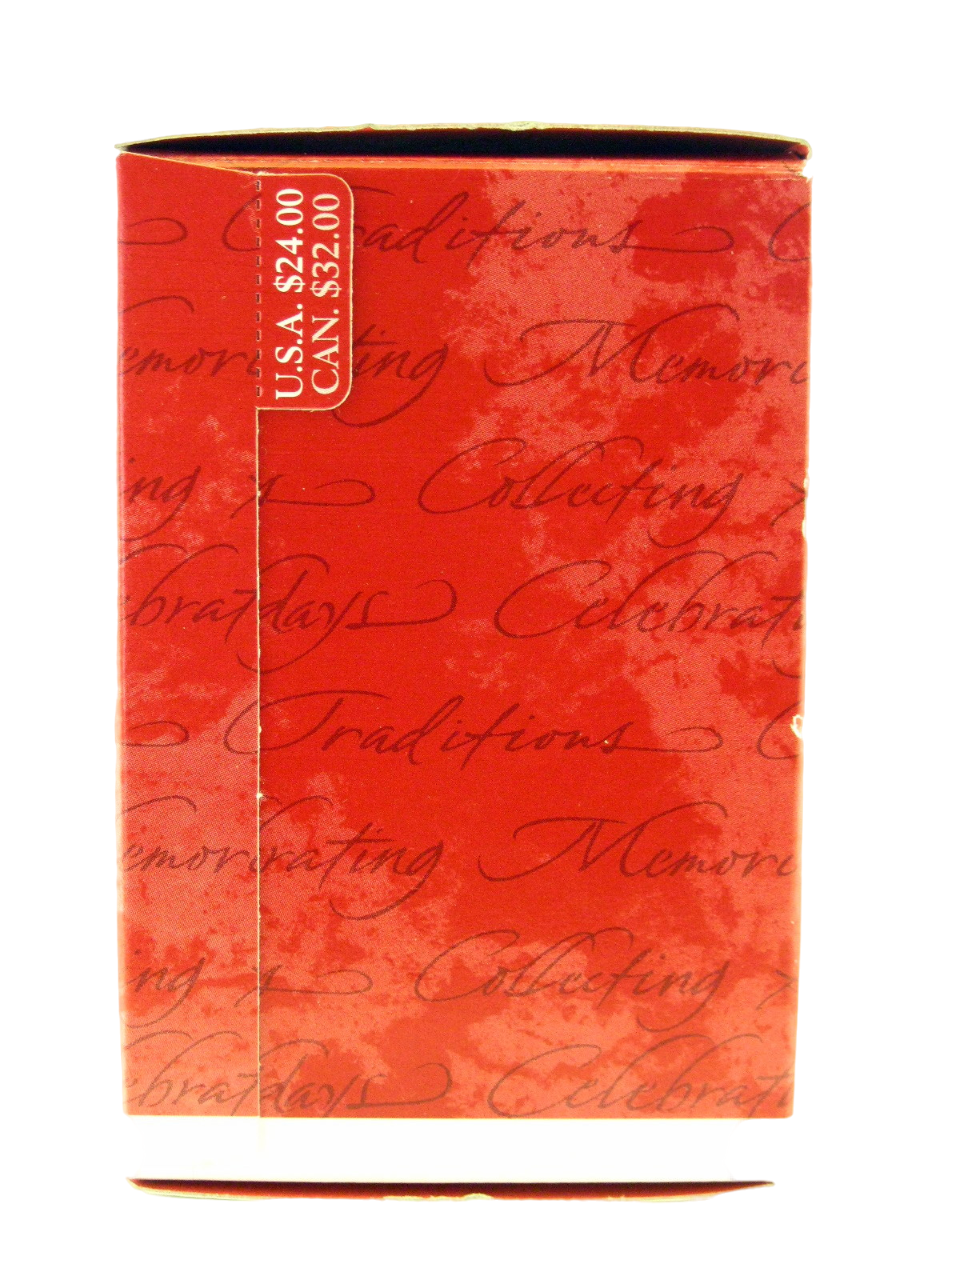 U.S.A. $24.00
CAN. $32.00
Traditions
emorating Memor
ng Collecting
bratdays Celebrat
Traditions
emorrating Memor
ng Collecting
bratdays Celebrat